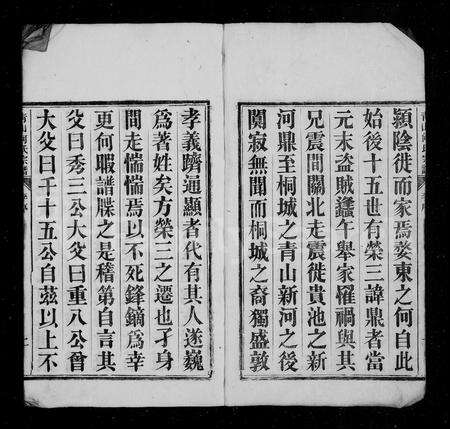 潁陰徙而家焉婺東之何自此
始後十五也有榮三諱鼎者當
元末盜賊蠭午舉家罹禍與其
兄震間關北走震徙貴池之新
河鼎至桐城之青山新河之後
闃寂無聞而桐城之裔獨盛敦
孝義躋通顯者代有其人遂巍
爲著姓矣方榮三之遷也孑身
間走惴惴焉以不死鋒鏑爲幸
更何暇譜牒之是稽第自言其
父曰秀三公大父曰重八公曾
大父曰千十五公自茲以上不